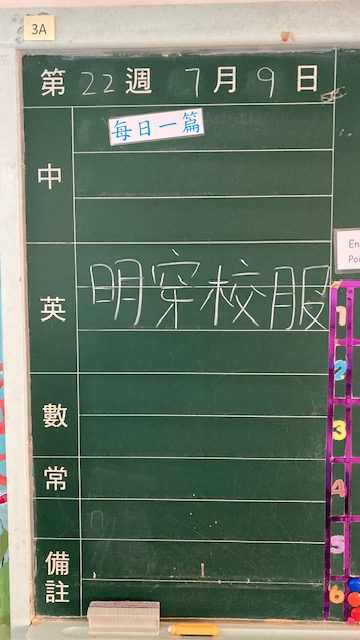 3A
第 22 週 7 月 9 日
中
每日一篇
英
明穿校服
數
常
備註
En
Poi
1
2
3
4
5
6